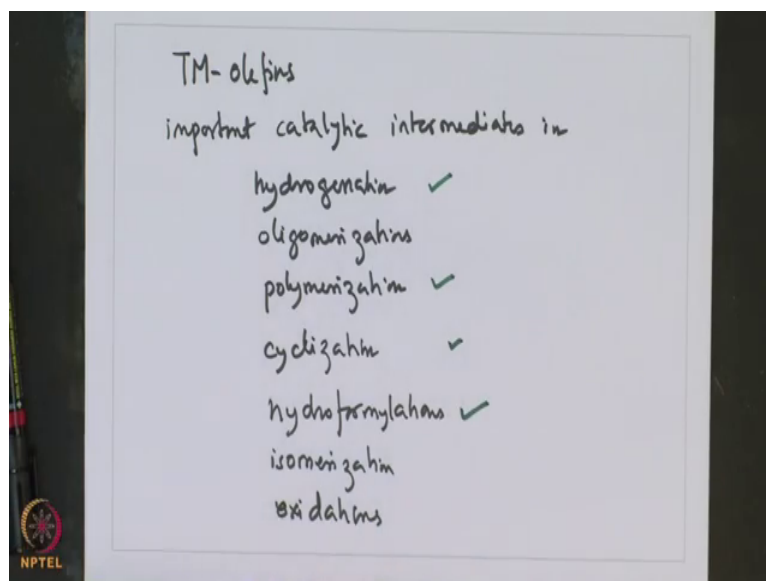 TM-olefins
important catalytic intermediates in
hydrogenation ✓
oligomerizations
polymerization ✓
cyclization ✓
hydroformylations ✓
isomerization
oxidations
NPTEL